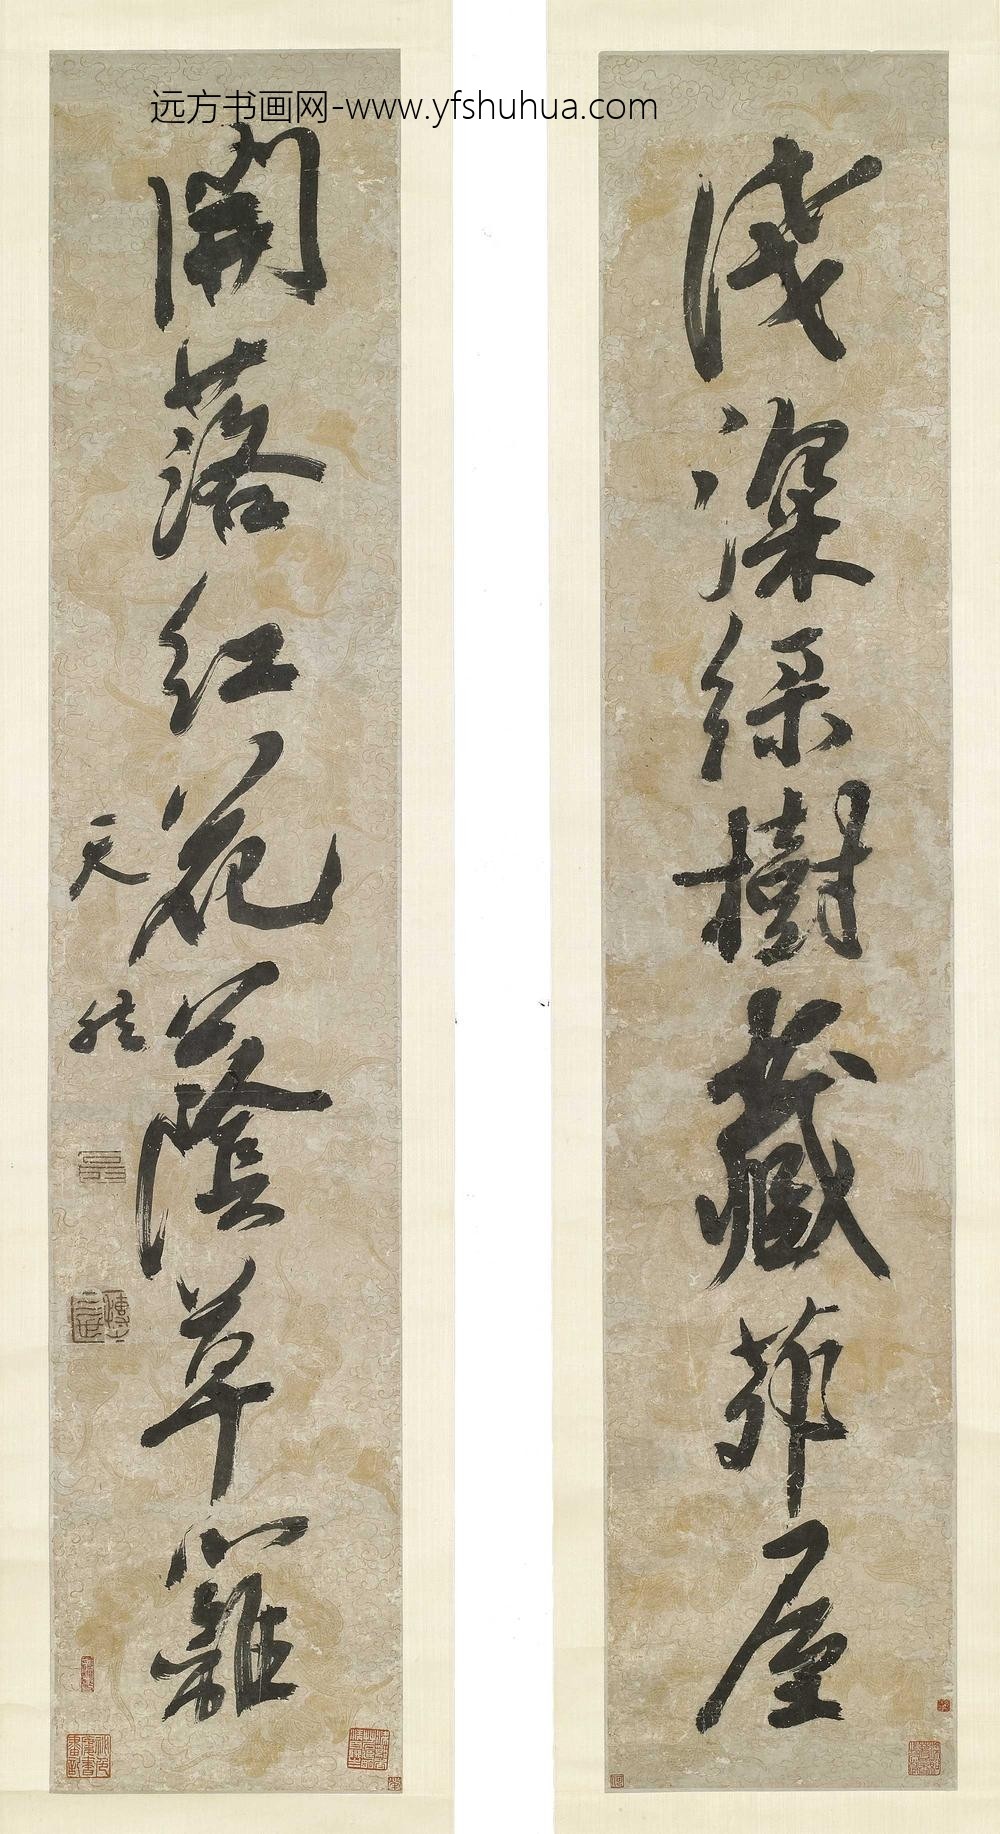 远方书画网-www.yfshuhua.com
浅深綠樹藏茆屋
開落紅花蔭草籬
天然